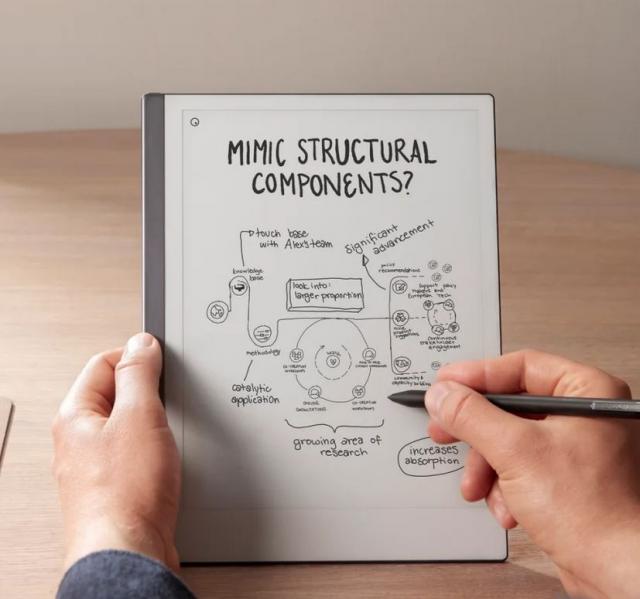 MIMIC STRUCTURAL
COMPONENTS?
touch base
with Alex's team
significant
advancement
knowledge
base
look into:
larger proportion
policy
recommendations
support policy
European Tech
continuous
stakeholder
engagement
methodology
catalytic
application
community &
capacity building
co-creation
workshops
growing area of
research
increases
absorption